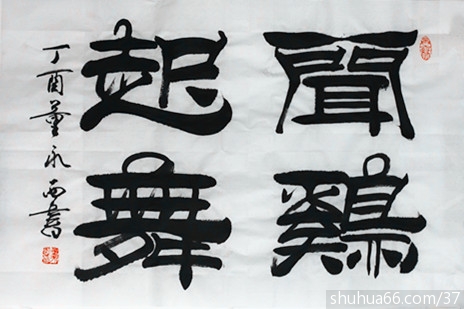 聞鷄
起舞
丁酉董永西書
shuhua66.com/37